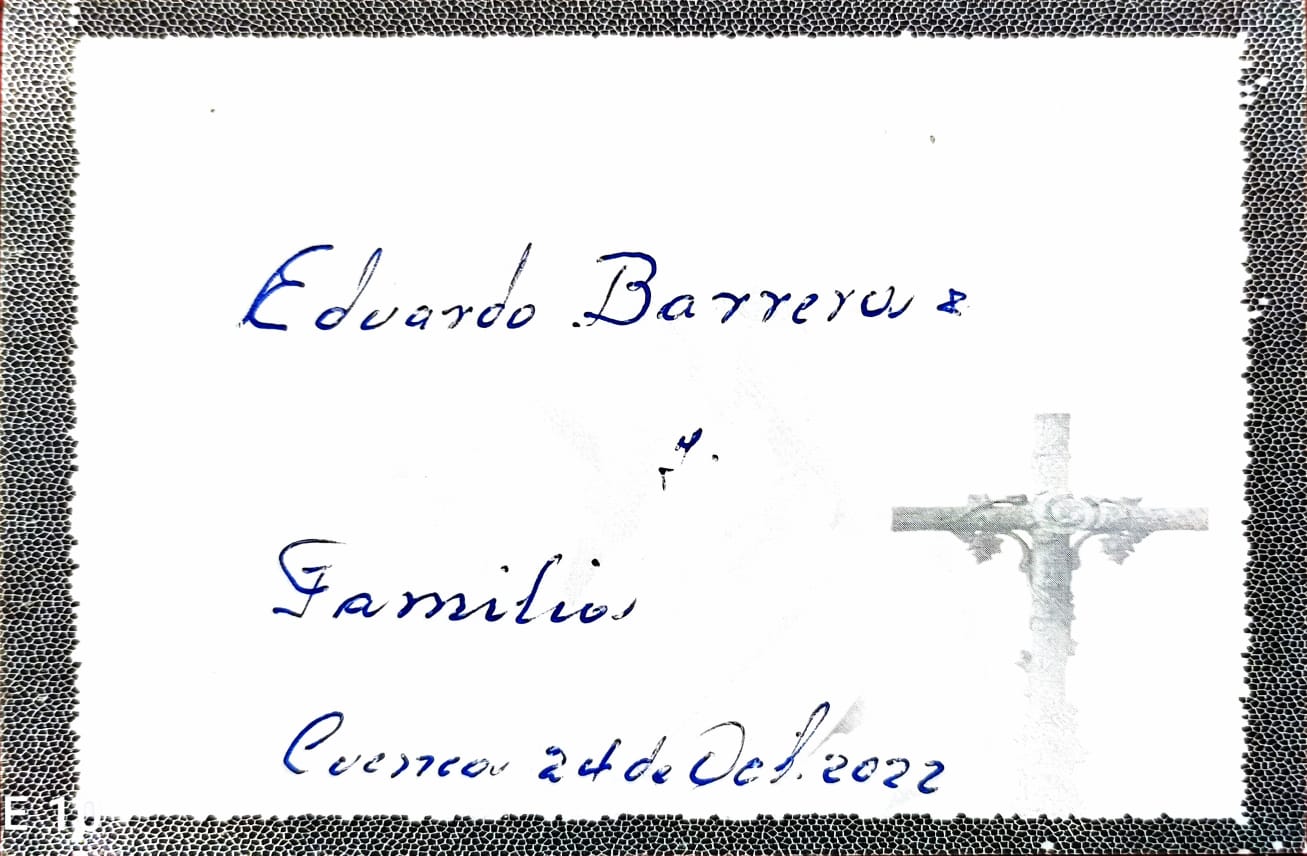 Eduardo Barrera
y
Familia
Cuenca 24 de Oct. 2022